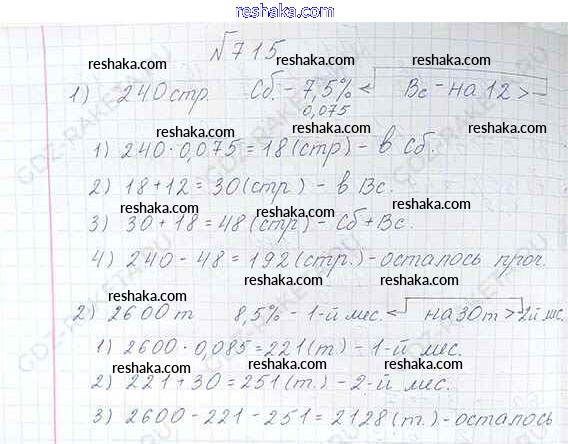 reshaka.com
№715
reshaka.com reshaka.com reshaka.com
1) 240 стр. Сб. - 7,5% Вс - на 12 >
reshaka.com reshaka.com
0,075
reshaka.com reshaka.com
1) 240 · 0,075 = 18 (стр) - в Сб.
reshaka.com reshaka.com
2) 18 + 12 = 30 (стр) - в Вс.
reshaka.com reshaka.com
3) 30 + 18 = 48 (стр) - Сб + Вс.
reshaka.com reshaka.com
4) 240 - 48 = 192 (стр.) - осталось проч.
reshaka.com reshaka.com
2) 2600 т 8,5% - 1-й мес. на 30 т > 2й мес.
reshaka.com reshaka.com
1) 2600 · 0,085 = 221 (т) - 1-й мес.
reshaka.com reshaka.com
2) 221 + 30 = 251 (т.) - 2-й мес.
reshaka.com reshaka.com
3) 2600 - 221 - 251 = 2128 (т.) - осталось
GDZ-RAKETA.RU